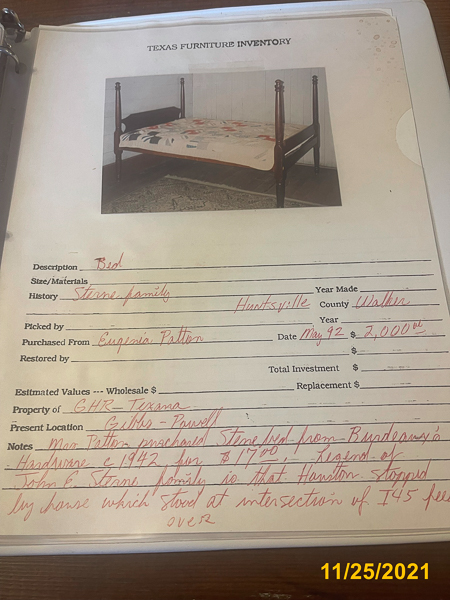 TEXAS FURNITURE INVENTORY
Description Bed
Size/Materials
History Sterne family Year Made
Huntsville County Walker
Picked by Year
Purchased From Eugenia Patton Date May 92 $ 2,000.00
Restored by $
Total Investment $
Esitmated Values --- Wholesale $ Replacement $
Property of GHR-Texana
Present Location Gibbs-Powell
Notes Patton purchased Sterne bed from
Hardware c 1942 for $17.00. Legend of
John Sterne family is that Houston stopped
by house which stood at intersection of I45
over
11/25/2021